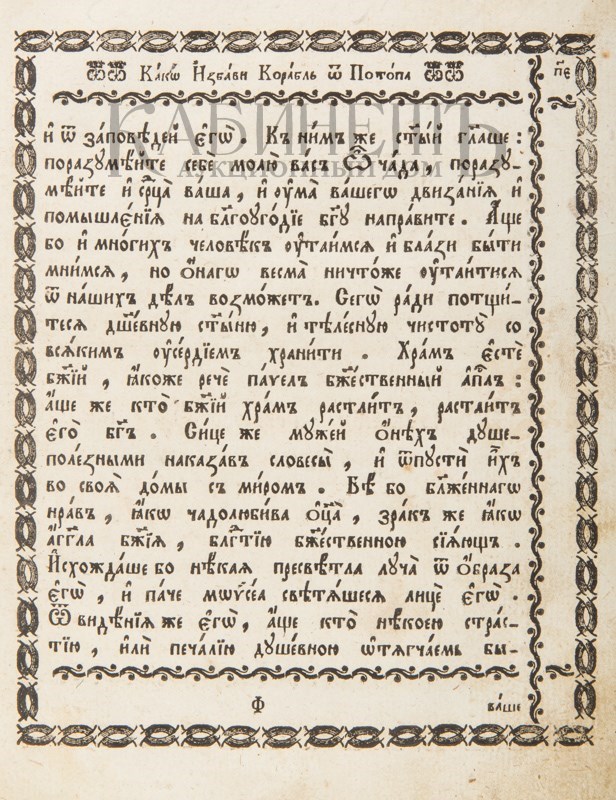 Ка́кѡ И҆зба́ви Кора́бль ѿ Пото́па
п҃е
КАБИНЕТЪ
АУКЦИОННЫЙ ДОМ
и҆ ѿ за́повѣдей є҆гѡ̀. Къ ни́мъ же ст҃ы́й гл҃аше :
поразꙋмѣ́йте себѐ молю́ васъ Ѽ ча́да , поразꙋ-
мѣ́йте и҆ ср҃ца̀ ва̑ша , и҆ ᲂу҆ма̀ ва́шегѡ движа̑нїѧ и҆
помышлє́нїѧ на бл҃гоꙋго́дїе бг҃ꙋ напра́вите . А҆́ще
бо и҆ мно́гихъ человѣ́къ ᲂу҆таи́мсѧ и҆ бл҃а́зи бы́ти
мни́мсѧ , но ѻ҆́нагѡ весма̀ ничто́же ᲂу҆таи́тисѧ
ѿ на́шихъ дѣ́лъ возмо́жетъ. Сегѡ̀ ра́ди потщи́-
тесѧ дш҃е́внꙋю ст҃ы́ню , и҆ тѣле́снꙋю чистотꙋ̀ со
всѧ́кимъ ᲂу҆се́рдїемъ храни́ти . Хра́мъ є҆стѐ
бж҃їй , ꙗ҆́коже речѐ па́ѵелъ бж҃е́ственный а҆пⷭ҇лъ :
а҆́ще же кто̀ бж҃їй хра́мъ растли́тъ , растли́тъ
є҆го̀ бг҃ъ . Си́це же мꙋже́й ѻ҆нѣ́хъ дꙋше-
поле́зными наказа́въ словесы̀ , и҆ ѿпꙋстѝ и҆̀хъ
во своѧ̑ до́мы съ ми́ромъ . Бѣ̀ бо бл҃же́ннагѡ
нра́въ , ꙗ҆́кѡ чадолюби́ва ѻ҆ц҃а̀ , зра́къ же ꙗ҆́кѡ
а҆́гг҃ла бж҃їѧ , бл҃гⷣтїю бж҃е́ственною сїѧ́ющъ .
И҆схожда́ше бо нѣ́каѧ пресвѣ́тла лꙋча̀ ѿ ѻ҆́браза
є҆гѡ̀ , и҆ па́че мѡѷсе́а свѣтѧ́шесѧ лицѐ є҆гѡ̀ .
Ѿ видѣ́нїѧ же є҆гѡ̀ , а҆́ще кто̀ нѣ́коею стра́с-
тїю , и҆лѝ печа́лїю дꙋше́вною ѡ҆тѧгча́емь бы-
Ф
ва́ше